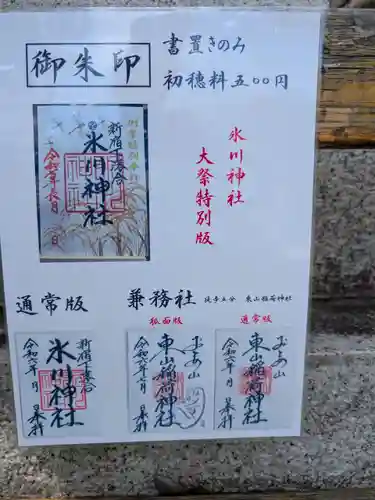 御朱印
書置きのみ
初穂料五〇〇円
氷川神社
大祭特別版
新宿下落合
氷川神社
通常版
兼務社
徒歩五分
東山稲荷神社
狐面版
通常版
新宿下落合
氷川神社
令和六年 月 日
奉拝
東山稲荷神社
令和六年 月 日
奉拝
東山稲荷神社
令和六年 月 日
奉拝